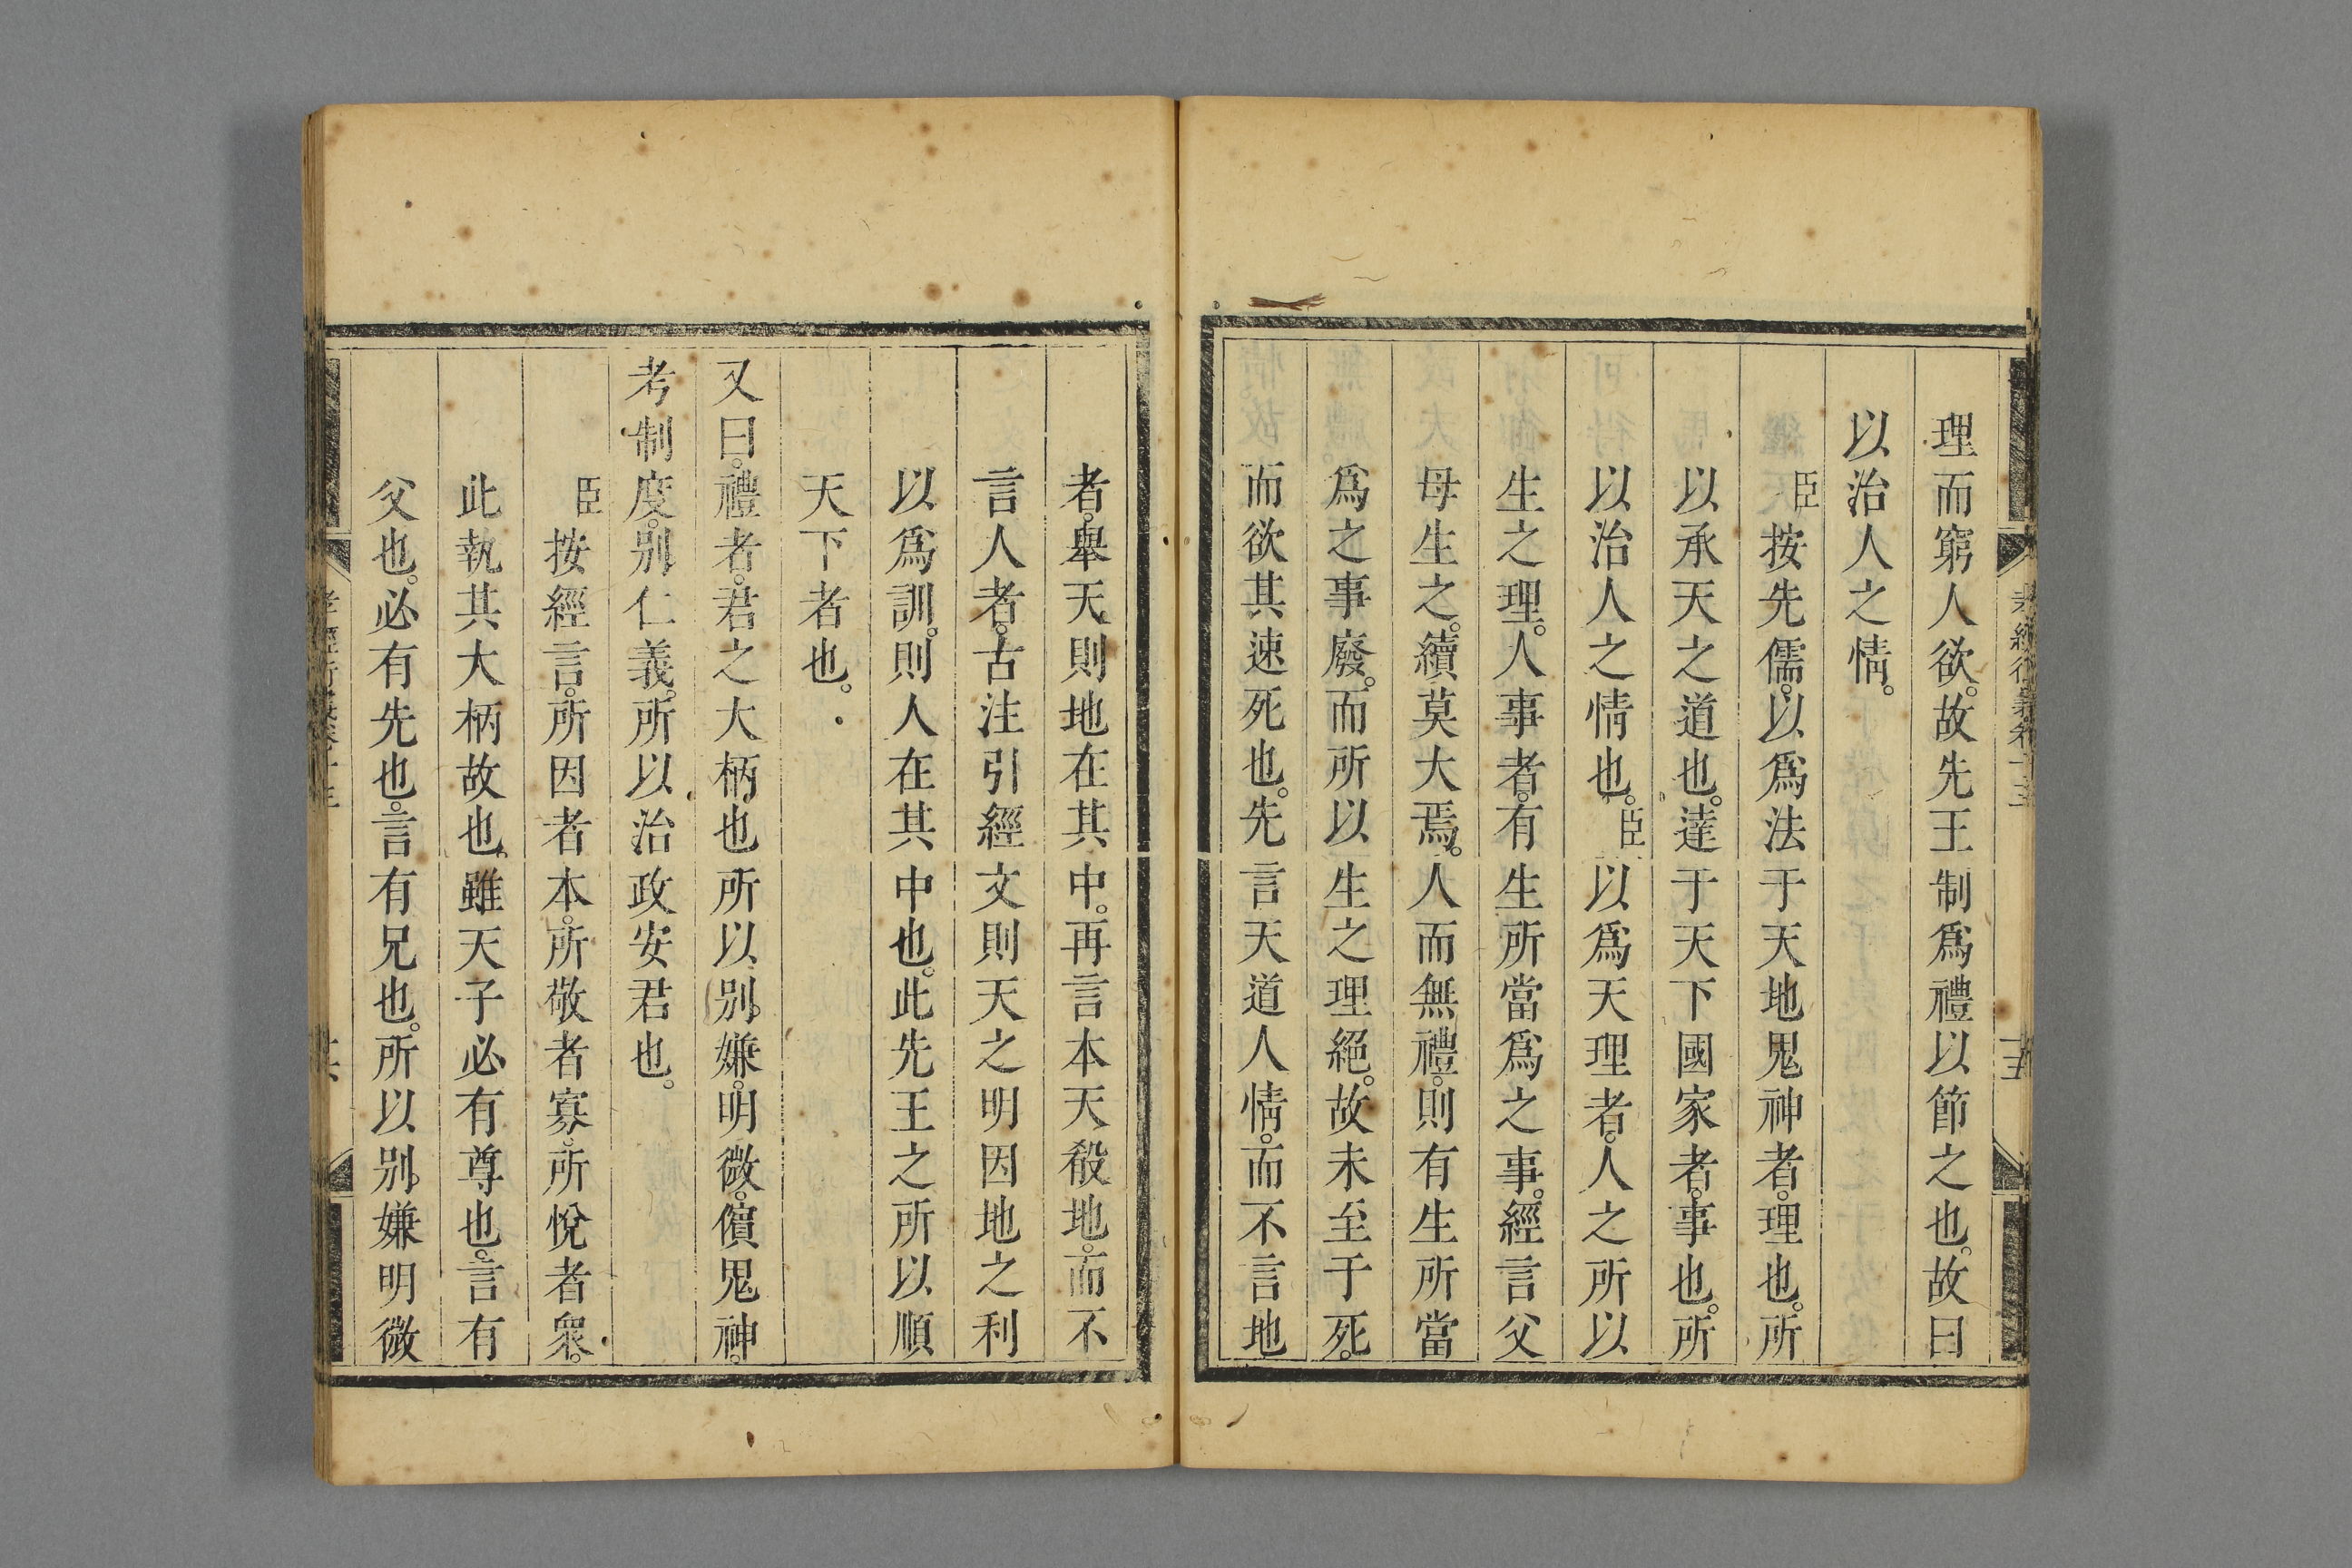 理而窮人欲。故先王制爲禮以節之也。故曰
以治人之情。
臣按先儒。以爲法于天地鬼神者。理也。所
以承天之道也。達于天下國家者。事也。所
以治人之情也。臣以爲天理者。人之所以
生之理。人事者。有生所當爲之事。經言父
母生之。續莫大焉。人而無禮。則有生所當
爲之事廢。而所以生之理絕。故未至于死。
而欲其速死也。先言天道人情。而不言地
者。舉天則地在其中。再言本天殽地。而不
言人者。古注引經文則天之明因地之利
以爲訓。則人在其中也。此先王之所以順
天下者也。
又曰。禮者。君之大柄也所以別嫌。明微。儐鬼神。
考制度。別仁義。所以治政安君也。
臣按經言。所因者本。所敬者寡。所悅者衆。
此執其大柄故也。雖天子必有尊也。言有
父也。必有先也。言有兄也。所以別嫌明微